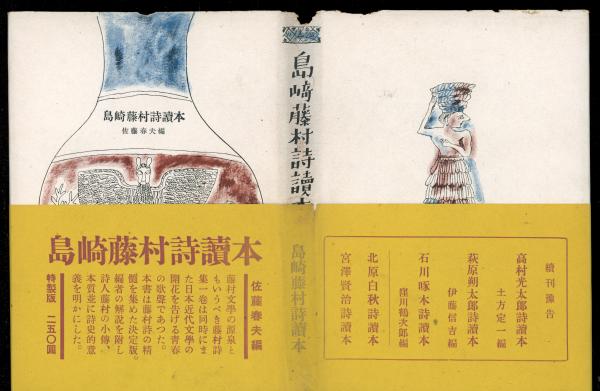 島崎藤村詩讀本
佐藤春夫編
島崎藤村詩讀本
島崎藤村詩讀本
佐藤春夫編
藤村文學の源泉と
もいうべき藤村詩
集一卷は同時にま
た日本近代文學の
開花を告げる青春
の歌聲であつた。
本書は藤村詩の精
髓を集めた決定版。
編者の解說を附し
詩人藤村の小傳、
本質並に詩史的意
義を明かにした。
特製版 二五〇圓
島崎藤村詩讀本
續刊豫告
高村光太郎詩讀本
土方定一編
萩原朔太郎詩讀本
伊藤信吉編
石川啄木詩讀本
窪川鶴次郎編
北原白秋詩讀本
宮澤賢治詩讀本